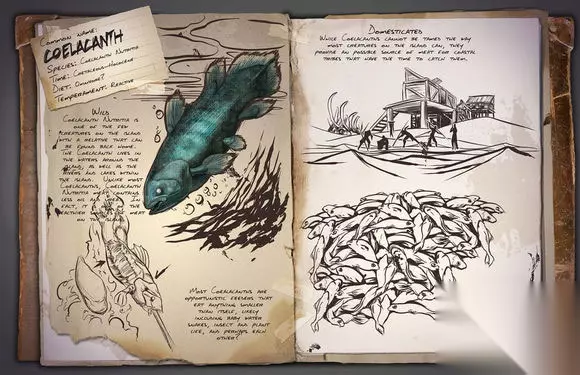 Common name:
COELACANTH
Species: Coelacanth Nutritia
Time: Cretaceous-Holocene
Diet: Omnivore?
Temperament: Reactive
Wild
Coelacanth Nutritia is
one of the few
creatures on the island
with a relative that can
be found back home.
The Coelacanth lives in
the waters around the
island, as well as the
rivers and lakes within
the island. Unlike most
Coelacanths, Coelacanth
Nutritia meat contains
less oil and urea. In
fact, it is one of the
healthier sources of meat
on the island.
Most Coelacanths are
opportunistic feeders that
eat anything smaller
than itself, likely
including baby water
snakes, insect and plant
life, and perhaps each
other!
Domesticated
While Coelacanths cannot be tamed the way
most creatures on the island can, they
provide an possible source of meat for coastal
tribes that have the time to catch them.